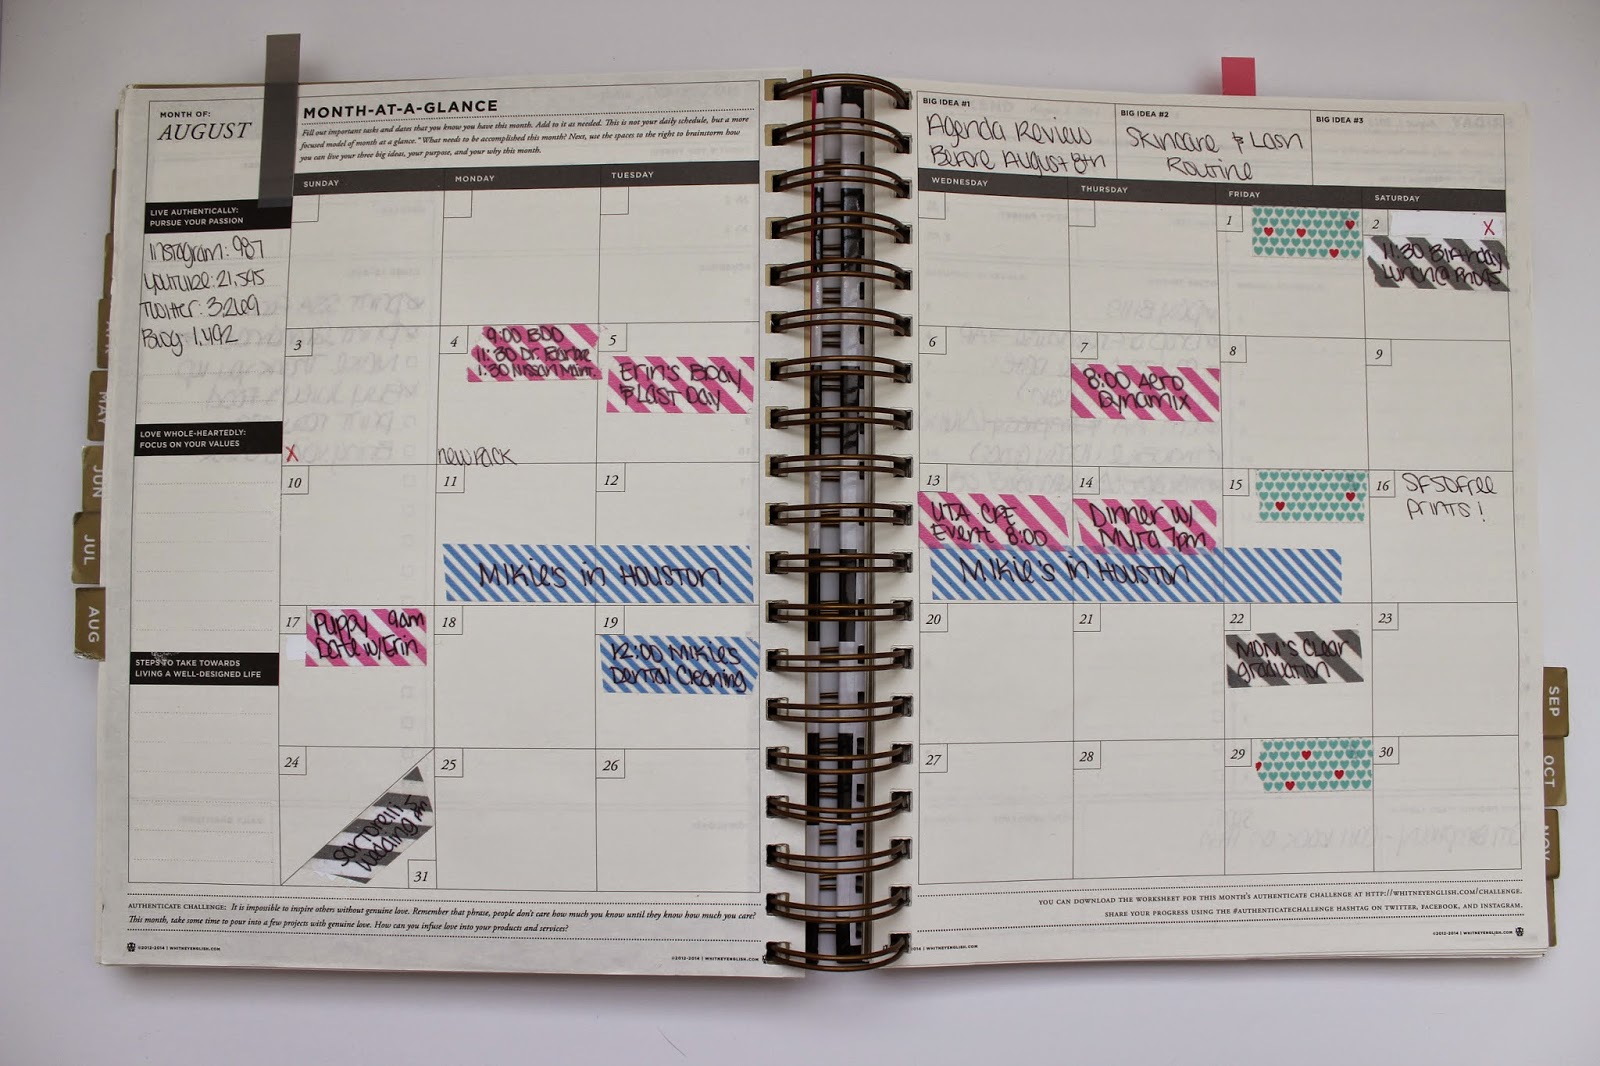 MONTH OF:
AUGUST
MONTH-AT-A-GLANCE
Fill out important tasks and dates that you know you have this month. Add to it as needed. This is not your daily schedule, but a more
focused model of month at a glance. "What needs to be accomplished this month? Next, use the spaces to the right to brainstorm how
you can live your three big ideas, your purpose, and your why this month.
SUNDAY
MONDAY
TUESDAY
LIVE AUTHENTICALLY:
PURSUE YOUR PASSION
Instagram: 987
Youtube: 21,545
Twitter: 3,269
Blog: 1,492
3
4
9:00 BOD
11:30 Dr. Barbee
1:30 Nissan Maint.
5
Erin's Bday
& Last Day
LOVE WHOLE-HEARTEDLY:
FOCUS ON YOUR VALUES
X
new pack
10
11
12
Mikie's in Houston
17
Puppy 9am
Date w/Erin
18
19
12:00 Mikies
Dental Cleaning
STEPS TO TAKE TOWARDS
LIVING A WELL-DESIGNED LIFE
24
Sartorelli 5
Wedding pm
31
25
26
AUTHENTICATE CHALLENGE: It is impossible to inspire others without genuine love. Remember that phrase, people don't care how much you know until they know how much you care?
This month, take some time to pour into a few projects with genuine love. How can you infuse love into your products and services?
©2012-2014 | WHITNEYENGLISH.COM
©2012-2014 | WHITNEYENGLISH.COM
MAY
JUN
JUL
AUG
BIG IDEA #1
Agenda Review
Before August 8th
BIG IDEA #2
Skincare & Lash
Routine
BIG IDEA #3
WEDNESDAY
THURSDAY
FRIDAY
SATURDAY
1
2
X
11:30 Birthday
Lunch @
6
7
8:00 Aero
Dynamix
8
9
13
UTA CPE
Event 8:00
14
Dinner w/
Myra 7pm
15
16
SF50free
prints!
Mikie's in Houston
20
21
22
Mom's Clear
graduation
23
27
28
29
30
YOU CAN DOWNLOAD THE WORKSHEET FOR THIS MONTH'S AUTHENTICATE CHALLENGE AT HTTP://WHITNEYENGLISH.COM/CHALLENGE.
SHARE YOUR PROGRESS USING THE #AUTHENTICATECHALLENGE HASHTAG ON TWITTER, FACEBOOK, AND INSTAGRAM.
014 | WHITNEYENGLISH.COM
©2012-2014 | WHITNEYENGLISH.COM
SEP
OCT
NOV